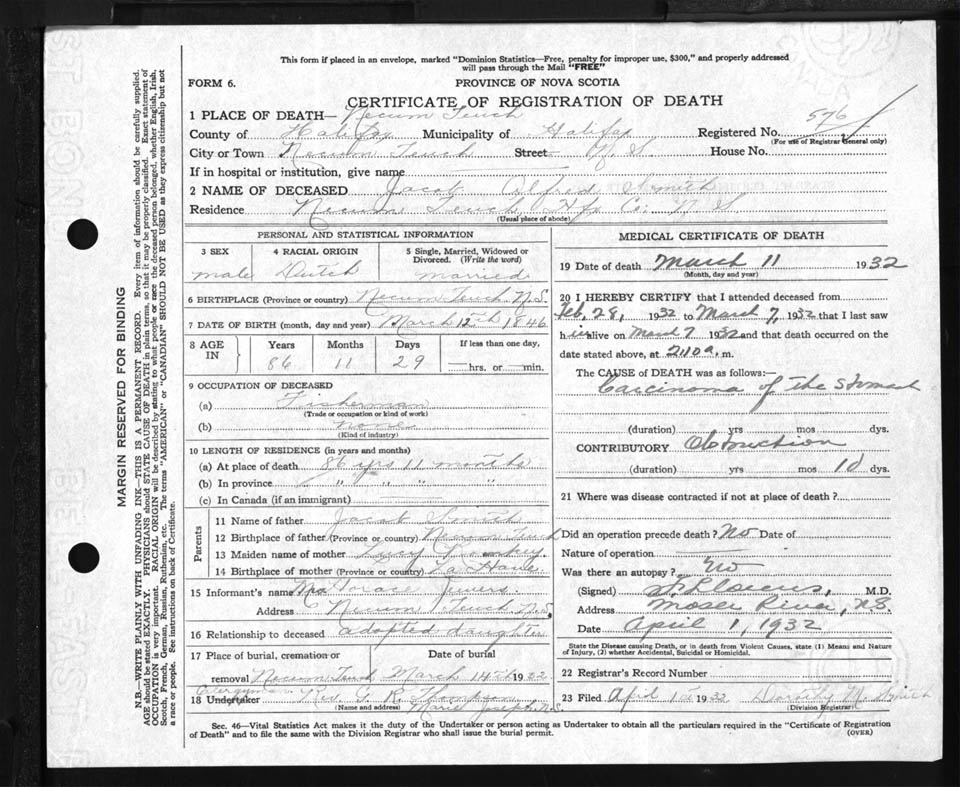 This form if placed in an envelope, marked "Dominion Statistics—Free, penalty for improper use, $300," and properly addressed
will pass through the Mail "FREE"
FORM 6. PROVINCE OF NOVA SCOTIA
CERTIFICATE OF REGISTRATION OF DEATH
1 PLACE OF DEATH— Necum Teuch
County of Halifax Municipality of Halifax Registered No. 576
(For use of Registrar General only)
City or Town Necum Teuch Street N.S. House No.
If in hospital or institution, give name
2 NAME OF DECEASED Jacob Alfred Smith
Residence Necum Teuch Hfx Co: N S
(Usual place of abode)
PERSONAL AND STATISTICAL INFORMATION
3 SEX 4 RACIAL ORIGIN 5 Single, Married, Widowed or
Divorced. (Write the word)
male Dutch married
6 BIRTHPLACE (Province or country) Necum Teuch N.S.
7 DATE OF BIRTH (month, day and year) March 12th 1846
8 AGE IN Years Months Days If less than one day,
86 11 29 hrs. or min.
9 OCCUPATION OF DECEASED
(a) Fisherman
(Trade or occupation or kind of work)
(b) none
(Kind of industry)
10 LENGTH OF RESIDENCE (in years and months)
(a) At place of death 86 yrs 11 months
(b) In province " " " "
(c) In Canada (if an immigrant)
Parents
11 Name of father Jacob Smith
12 Birthplace of father (Province or country) Necum Teuch
13 Maiden name of mother Lucy
14 Birthplace of mother (Province or country) La Have
15 Informant's name Mrs Horace Jewers
Address Necum Teuch N.S.
16 Relationship to deceased adopted daughter
17 Place of burial, cremation or Date of burial
removal Necum Teuch March 14th 1932
Clergyman
18 Undertaker Rev G. R. Thompson
(Name and address) Marie Joseph N.S.
MEDICAL CERTIFICATE OF DEATH
19 Date of death March 11 1932
(Month, day and year)
20 I HEREBY CERTIFY that I attended deceased from
Feb, 28, 1932 to March 7, 1932 that I last saw
h im alive on March 7 1932 and that death occurred on the
date stated above, at 2.10 a. m.
The CAUSE of DEATH was as follows:—
Carcinoma of the stomach
(duration) yrs mos dys.
CONTRIBUTORY Obstruction
(duration) yrs mos 10 dys.
21 Where was disease contracted if not at place of death?
Did an operation precede death? No Date of
Nature of operation
Was there an autopsy? No
(Signed) M.D.
Address Moser River, N.S.
Date April 1, 1932
State the Disease causing Death, or in death from Violent Causes, state (1) Means and Nature
of Injury, (2) whether Accidental, Suicidal or Homicidal.
22 Registrar's Record Number
23 Filed April 1st 1932 Dorothy M Smith
(Division Registrar)
Sec. 46—Vital Statistics Act makes it the duty of the Undertaker or person acting as Undertaker to obtain all the particulars required in the "Certificate of Registration
of Death" and to file the same with the Division Registrar who shall issue the burial permit. (OVER)
MARGIN RESERVED FOR BINDING
N.B.—WRITE PLAINLY WITH UNFADING INK—THIS IS A PERMANENT RECORD. Every item of information should be carefully supplied.
AGE should be stated EXACTLY. PHYSICIANS should STATE CAUSE OF DEATH in plain terms, so that it may be properly classified. Exact statement of
OCCUPATION is very important. RACIAL ORIGIN will be described by stating to what people or race the deceased person belonged, whether English, Irish,
Scotch, French, German, Russian, Ruthenian, etc. The terms "AMERICAN" or "CANADIAN" SHOULD NOT BE USED as they express citizenship but not
a race or people. See instructions on back of Certificate.